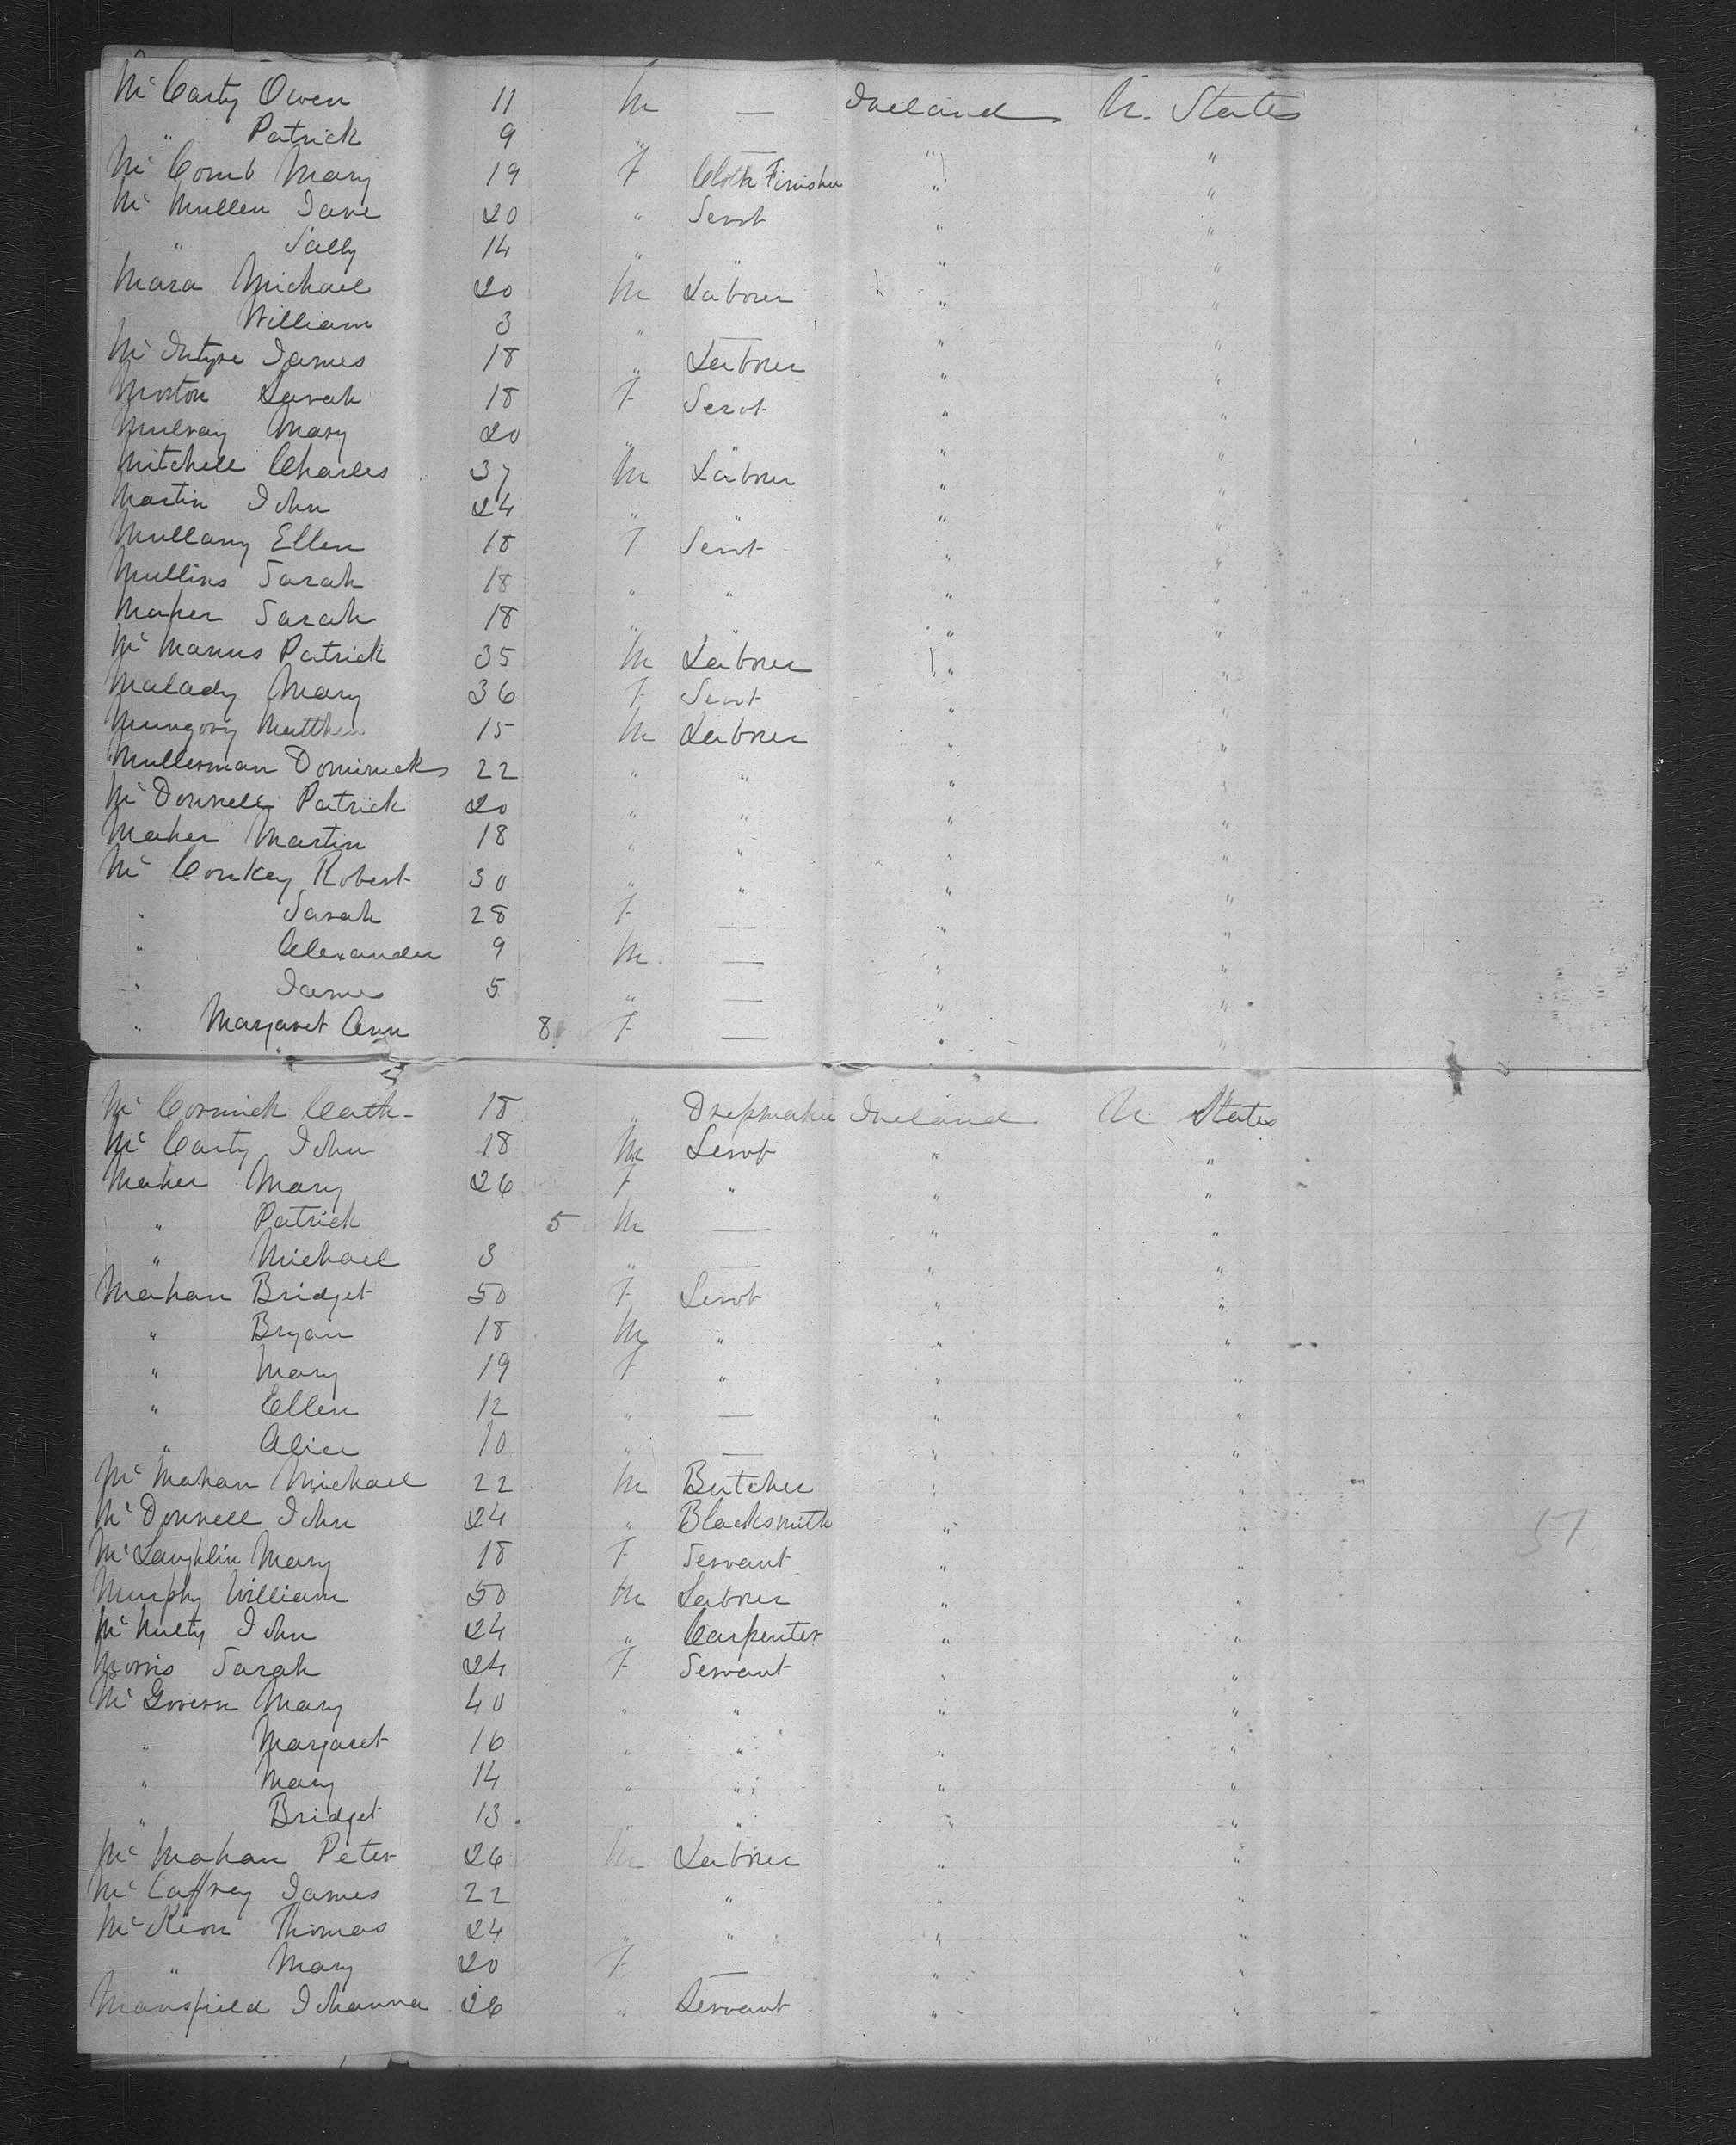 Mc Carty Owen 11 M — Ireland U. States
" Patrick 9 " — " "
Mc Comb Mary 19 F Cloth Finisher " "
Mc Mullen Jane 20 " Servt " "
" Sally 14 " " " "
Mara Michael 20 M Laborer " "
William 3 " — " "
Mc Intyre James 18 " Laborer " "
Morton Sarah 18 F Servt " "
Mulray Mary 20 " " " "
Mitchell Charles 37 M Laborer " "
Martin John 24 " " " "
Mullany Ellen 18 F Servt " "
Mullins Sarah 18 " " " "
Maher Sarah 18 " " " "
Mc Manus Patrick 35 M Laborer " "
Malady Mary 36 F Servt " "
Mungovy Matthew 15 M Laborer " "
Mullerman Dominick 22 " " " "
Mc Donnell Patrick 20 " " " "
Maher Martin 18 " " " "
Mc Conkey Robert 30 " " " "
" Sarah 28 F — " "
" Alexander 9 M — " "
" James 5 " — " "
" Margaret Ann 8 F — " "
Mc Cormick Cath- 18 " Dressmaker Ireland U States
Mc Carty John 18 M Servt " "
Maher Mary 26 F " " "
" Patrick 5 M — " "
" Michael 3 " — " "
Mahan Bridget 50 F Servt " "
" Bryan 18 M " " "
" Mary 19 F " " "
" Ellen 12 " — " "
" Alice 10 " — " "
Mc Mahan Michael 22 M Butcher " "
Mc Donnell John 24 " Blacksmith " "
57
Mc Laughlin Mary 18 F Servant " "
Murphy William 50 M Laborer " "
Mc Nulty John 24 " Carpenter " "
Morris Sarah 24 F Servant " "
Mc Govern Mary 40 " " " "
" Margaret 16 " " " "
" Mary 14 " " " "
" Bridget 13 " " " "
Mc Mahan Peter 26 M Laborer " "
Mc Caffrey James 22 " " " "
Mc Keon Thomas 24 " " " "
" Mary 20 F — " "
Mansfield Johanna 26 " Servant " "